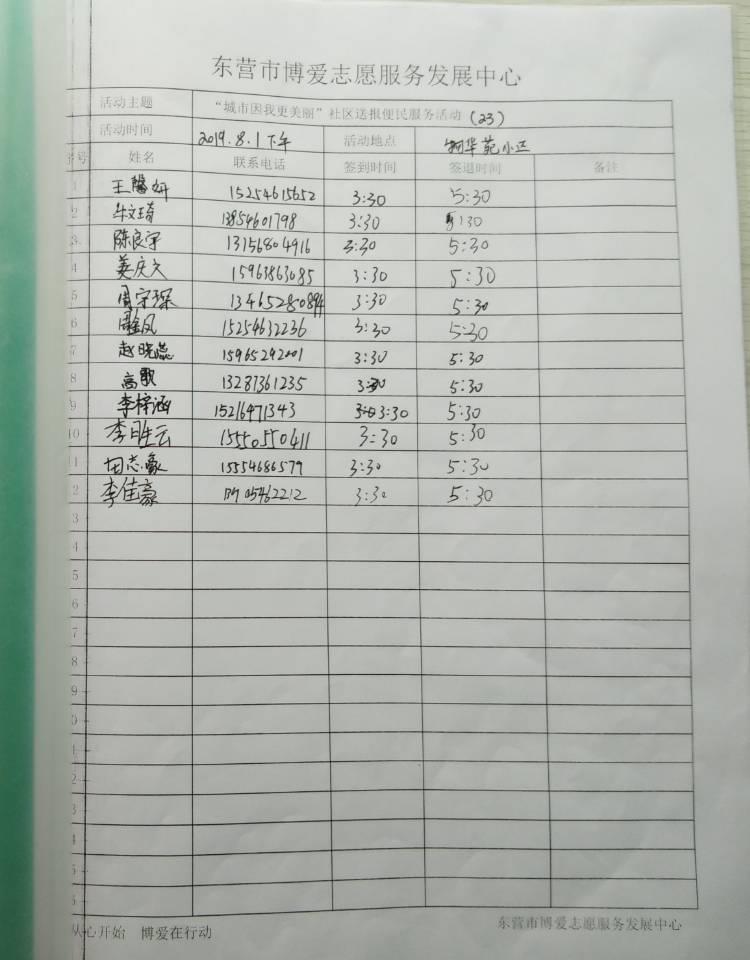 东营市博爱志愿服务发展中心
活动主题 “城市因我更美丽”社区送报便民服务活动(23)
活动时间 2019.8.1下午 活动地点 翔华苑小区
序号 姓名 联系电话 签到时间 签退时间 备注
1 王馨妍 15254615652 3:30 5:30
2 牛文琦 13854601798 3:30 5:30
3 陈良宇 13156804916 3:30 5:30
4 姜庆文 15963863085 3:30 5:30
5 周宇琛 13465280894 3:30 5:30
6 15254632236 3:30 5:30
7 赵晓蕊 15965292001 3:30 5:30
8 高歌 13287361235 3:30 5:30
9 李梓涵 15216471343 3:30 5:30
10 李胜云 15550550411 3:30 5:30
1 田志豪 15554686579 3:30 5:30
2 李佳豪 05462212 3:30 5:30
3
4
5
6
7
8
9
0
1
2
3
4
5
6
从心开始 博爱在行动 东营市博爱志愿服务发展中心